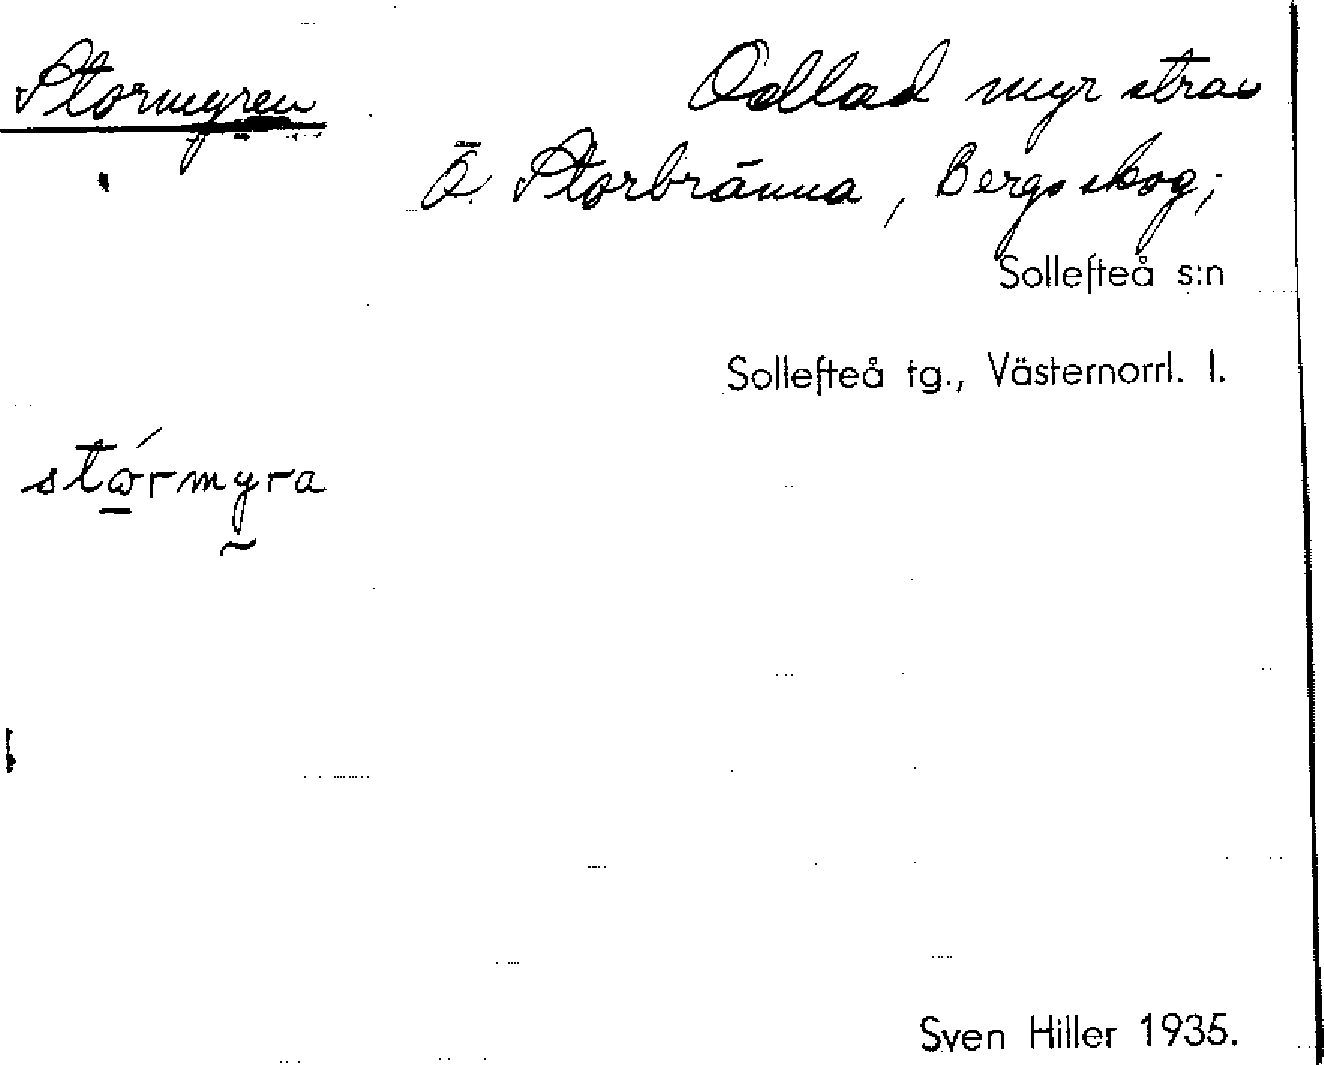 Stormyren
Odlad myr strax
Ö. Storbränna, Bergsskog;
Sollefteå s:n
Sollefteå tg., Västernorrl. l.
stórmyra
Sven Hiller 1935.